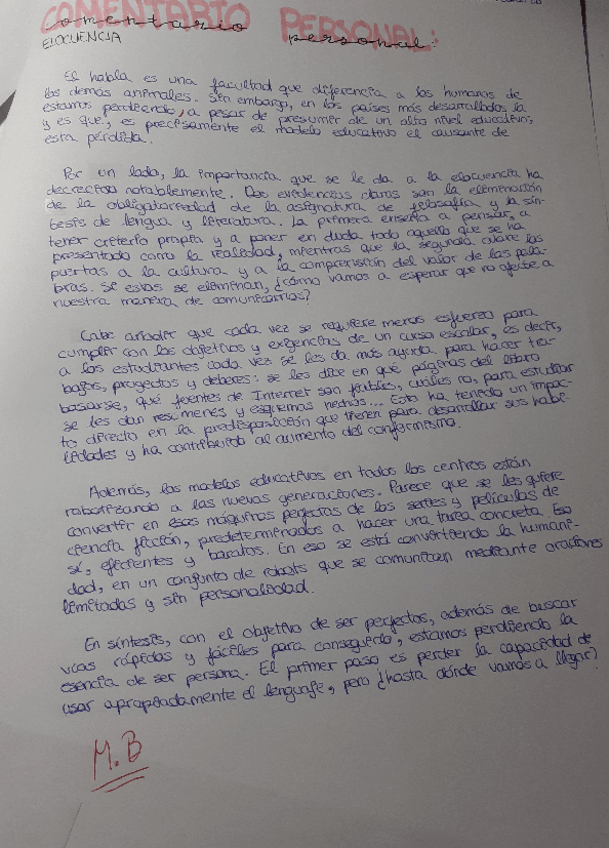 COMENTARIO PERSONAL:
comentario personal:
ELOCUENCIA
El habla es una facultad que diferencia a los humanos de
los demás animales. Sin embargo, en los países más desarrollados la
estamos perdiendo, a pesar de presumir de un alto nivel educativo;
y es que, es precisamente el modelo educativo el causante de
esta pérdida.
Por un lado, la importancia que se le da a la elocuencia ha
decrecido notablemente. Dos evidencias claras son la eliminación
de la obligatoriedad de la asignatura de filosofía y la sín-
tesis de lengua y literatura. La primera enseña a pensar, a
tener criterio propio y a poner en duda todo aquello que se ha
presentado como la realidad, mientras que la segunda abre las
puertas a la cultura y a la comprensión del valor de las pala-
bras. Si estas se eliminan, ¿cómo vamos a esperar que no afecte a
nuestra manera de comunicarnos?
Cabe añadir que cada vez se requiere menos esfuerzo para
cumplir con los objetivos y exigencias de un curso escolar, es decir,
a los estudiantes cada vez se les da más ayuda para hacer tra-
bajos, proyectos y deberes: se les dice en qué páginas del libro
basarse, qué fuentes de Internet son fiables, cuáles no, para estudiar
se les dan resúmenes y esquemas hechos... Esto ha tenido un impac-
to directo en la predisposición que tienen para desarrollar sus habi-
lidades y ha contribuido al aumento del conformismo.
Además, los modelos educativos en todos los centros están
robotizando a las nuevas generaciones. Parece que se les quiere
convertir en esas máquinas perfectas de las series y películas de
ciencia ficción, predeterminados a hacer una tarea concreta. Eso
sí, eficientes y baratos. En eso se está convirtiendo la humani-
dad, en un conjunto de robots que se comunican mediante oraciones
limitadas y sin personalidad.
En síntesis, con el objetivo de ser perfectos, además de buscar
vías rápidas y fáciles para conseguirlo, estamos perdiendo la
esencia de ser persona. El primer paso es perder la capacidad de
usar apropiadamente el lenguaje, pero ¿hasta dónde vamos a llegar?
M.B